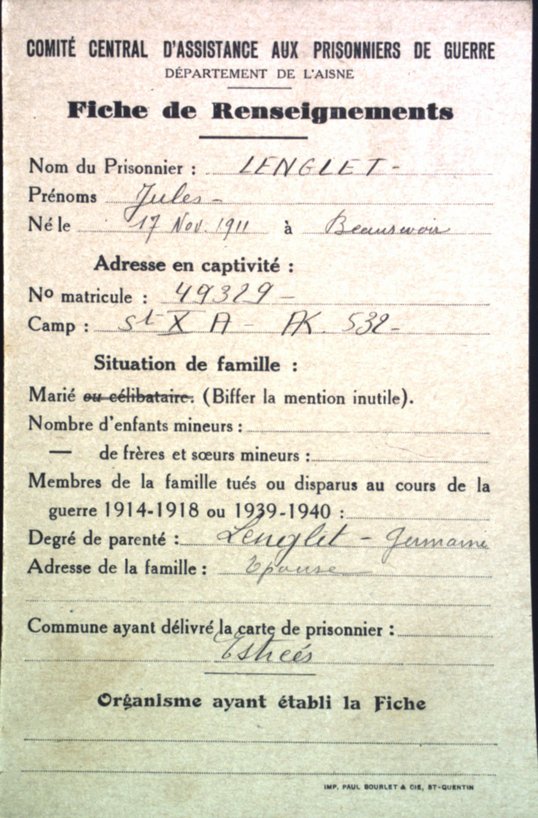 COMITÉ CENTRAL D'ASSISTANCE AUX PRISONNIERS DE GUERRE
DÉPARTEMENT DE L'AISNE
Fiche de Renseignements
Nom du Prisonnier : LENGLET -
Prénoms Jules -
Né le 17 Nov. 1911 à Beaurevoir
Adresse en captivité :
No matricule : 49329 -
Camp : St X A - AK. 532 -
Situation de famille :
Marié ou célibataire. (Biffer la mention inutile).
Nombre d'enfants mineurs :
— de frères et sœurs mineurs :
Membres de la famille tués ou disparus au cours de la
guerre 1914-1918 ou 1939-1940 :
Degré de parenté : Lenglet - Germaine
Adresse de la famille : Epouse
Commune ayant délivré la carte de prisonnier :
Estrées
Organisme ayant établi la Fiche
IMP. PAUL BOURLET & CIE, ST-QUENTIN